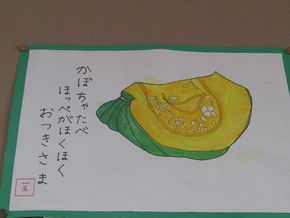 かぼちゃたべ
ほっぺがほくほく
おつきさま
菜